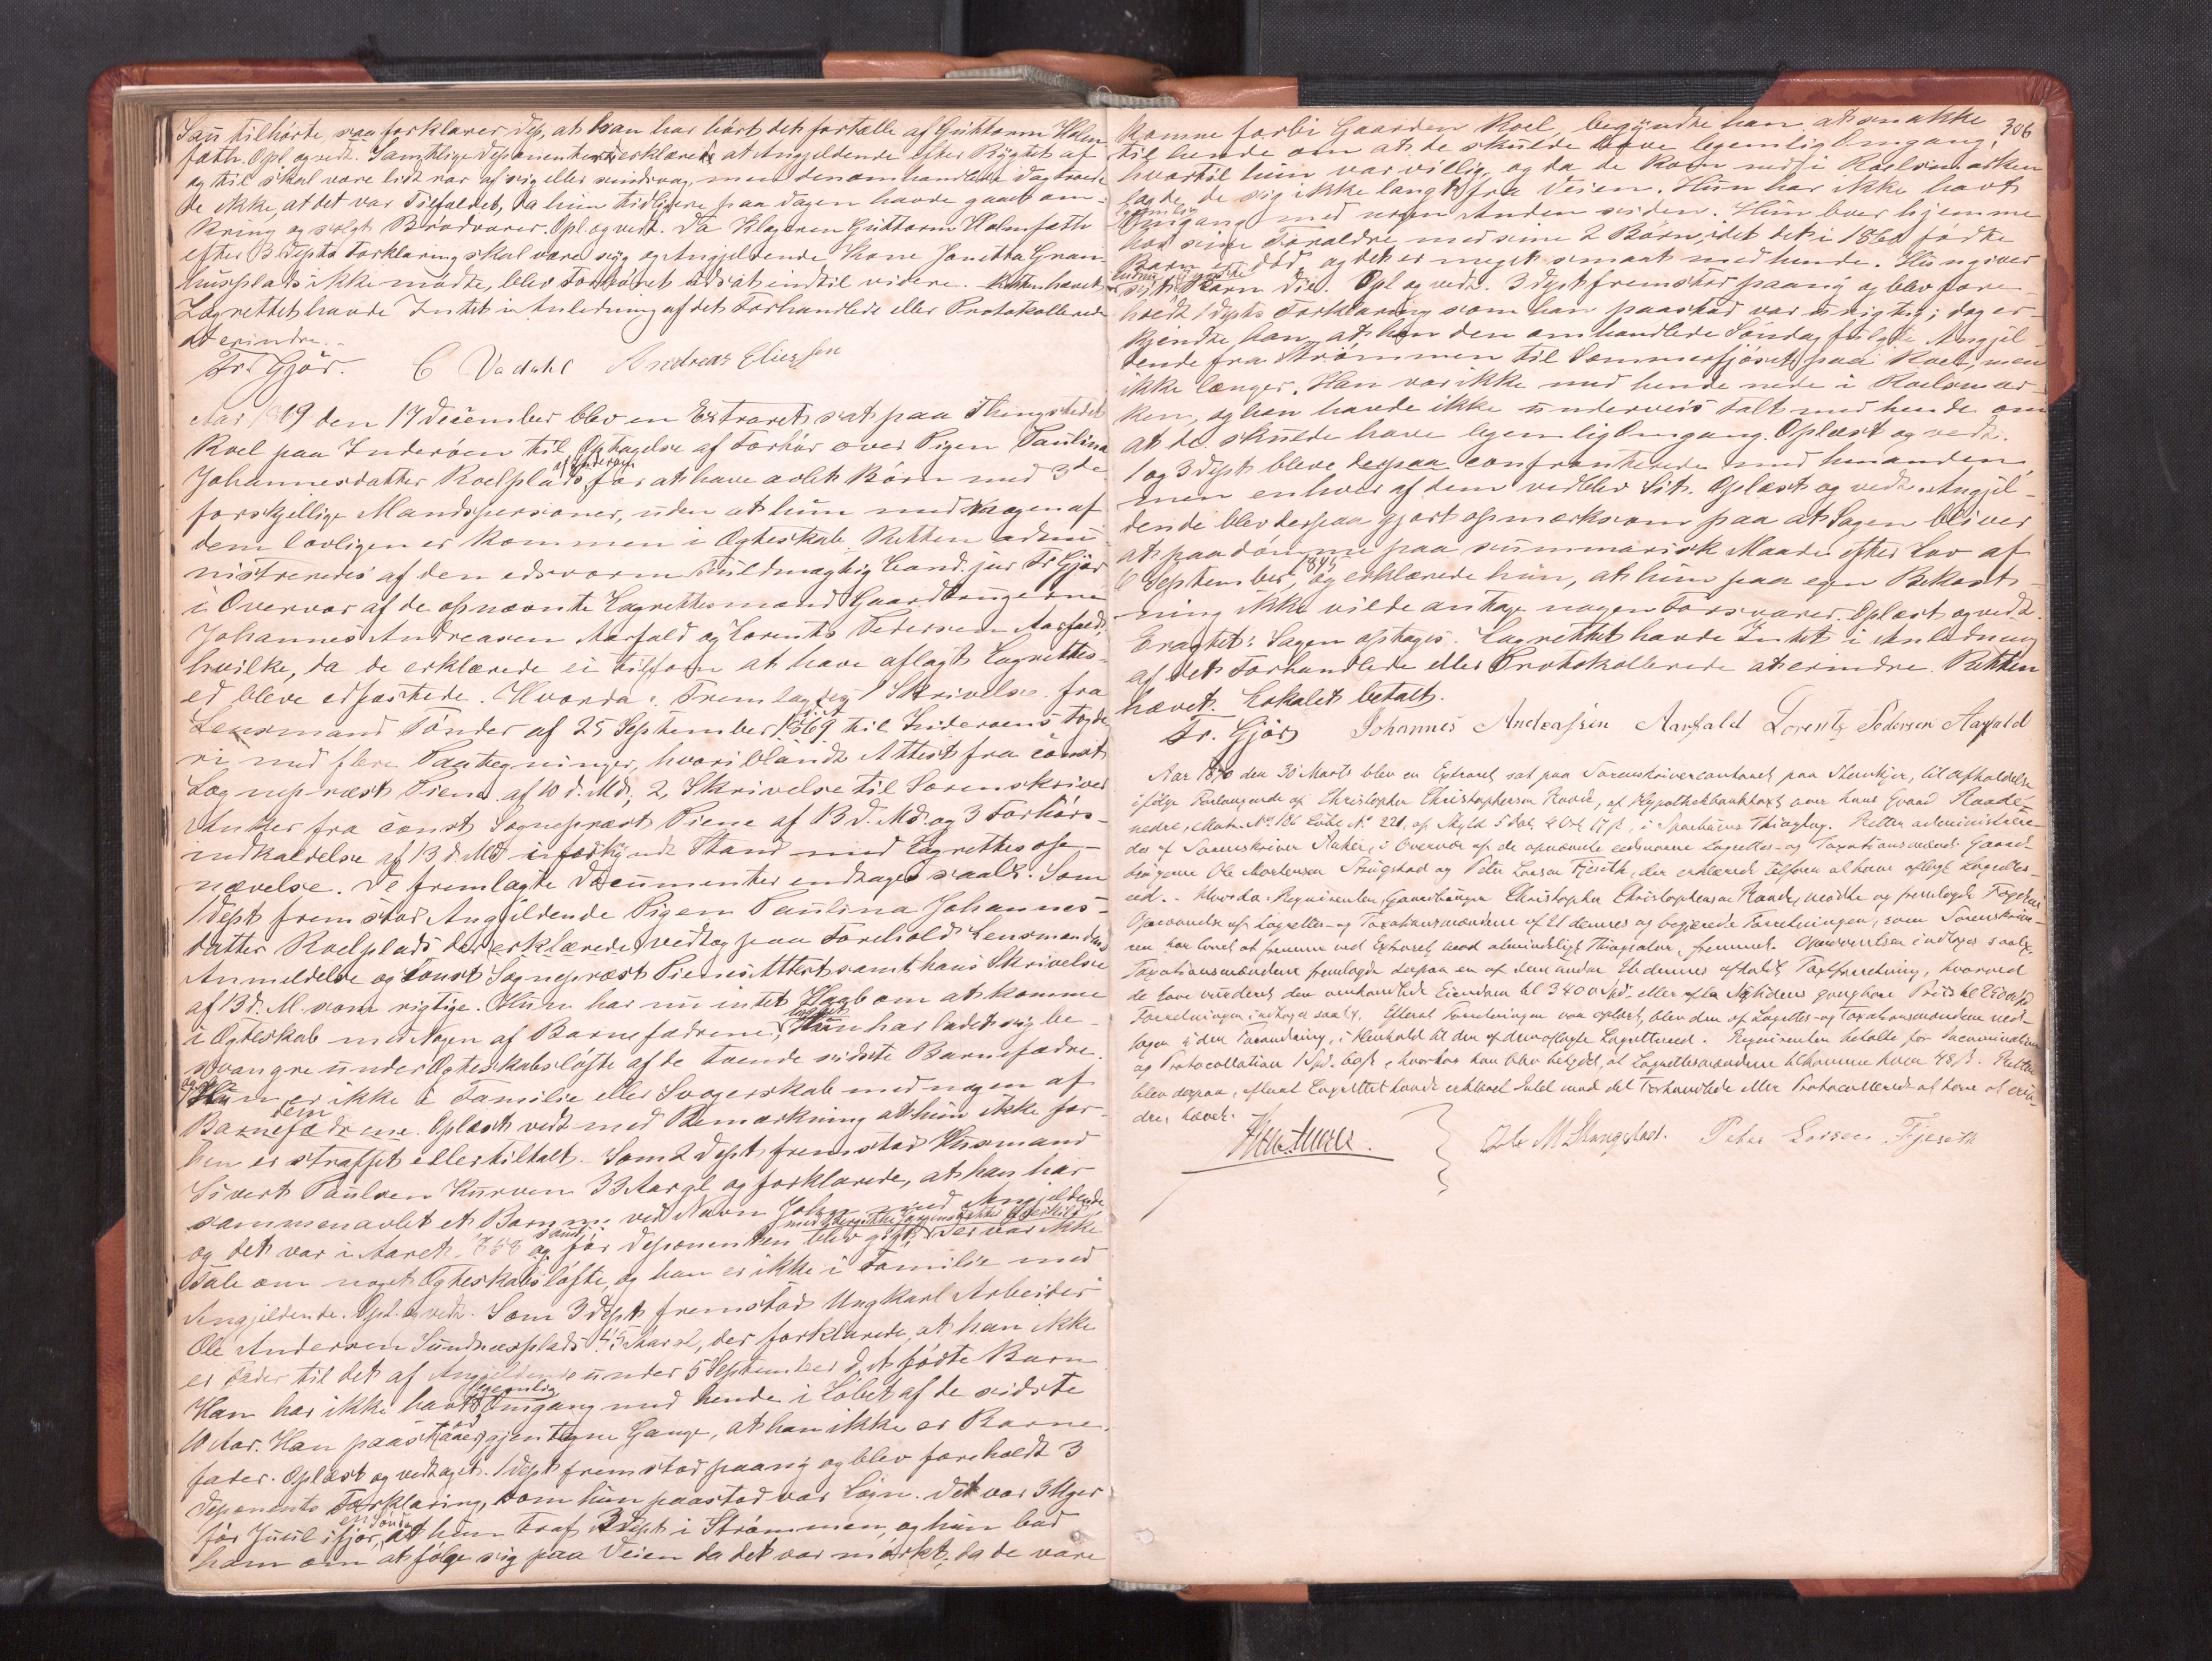 Sau tilhørte, saa forklarer Dep, at han har hørt det fortælle af Guttorm Holm
fæth. Opl. og vedt. Samtlige Deponenter erklærede at Angjeldende efter Rygtet af
og til skal være lidt rar af sig eller sindsvag, men den omhandlede Dag troede
de ikke, at det var Tilfældet, da hun tidligere paa Dagen havde gaaet om-
kring og solgt Brødvarer. Opl. og vedt. Da Klageren Guttorm Holmfæth
efter 3 Depts Forklaring skal være syg og Angjeldende Kone Janetta Gran
husplads ikke mødte, blev Forhøret udsat indtil videre. Retten hævet.
Lagrettet havde Intet i Anledning af det Forhandlede eller Protokollerede
at erindre.
Fr. Gjør. C Vadahl Andreas Eliessen
Aar 1869 den 17 December blev en Extraret sat paa Thingstedet
Roel paa Inderøen til Optagelse af Forhør over Pigen Paulina
Johannesdatter Roelplads af Inderøen for at have avlet Børn med 3de
forskjellige Mandspersoner, uden at hun med Nogen af
dem lovligen er kommen i Ægteskab. Retten admi-
nistreredes af den edsvorne Fuldmægtig Cand. jur Fr Gjør
i Overvær af de opnævnte Lagrettesmænd Gaardbrugerne
Johannes Andreasen Aarfald og Lorents Pedersen Aarfald,
hvilke, da de erklærede ei tilforn at have aflagt Lagrettes-
ed bleve edfæstede. Hvorda: Fremlagdes 1 Skrivelse fra
Lensmand Tønder af 25 September 1869 til Inderøens Fogde
ri med flere Paategninger, hvoriblandt Attest fra const
Sognepræst Piene af 10 d. Md., 2, Skrivelse til Sorenskriver
Anker fra const Sognepræst Piene af 13 d. Md. og 3 Forhørs-
indkaldelse af 13 d. Md i forkyndt Stand med Lagrettesop-
nævelse. De fremlagte Documenter indtages saal. Som
1 Dept fremstod Angjeldende Pigen Paulina Johannes-
datter Roelplads der erklærede vedtog paa Forehold Lensmandens
Anmeldelse og Const Sognepræst Pienes Attest samt hans Skrivelse
af 13 d. M. som rigtige. Hun har nu intet Haab om at komme
i Ægteskab med Nogen af Barnefædrene, Hun har ladet sig be-
svangre under Ægteskabsløfte af de tvende sidste Barnefædre.
Hun er ikke i Familie eller Svogerskab med nogen af
dem
Barnefædrene. Oplæst vedt med Bemærkning at hun ikke før-
hen er straffet eller tiltalt. Som 2 Dept fremstod Husmand
Sivert Paulsen Kurven 33 Aar gl og forklarede, at han har
sammenavlet et Barn ved Navn Johan med Angjeldende
og det var i Aaret 1858 og før Deponenten blev gift; der var ikke
Tale om noget Ægteskabsløfte, og han er ikke i Familie med
Angjeldende. Opl. og vedt. Som 3 Dept fremstod Ungkarl Arbeider
Ole Andersen Sundnesplads 45 Aar gl, der forklarede, at han ikke
er Fader til det af Angjeldende under 5 September d. A fødte Barn
Han har ikke havt legemlig Omgang med hende i Løbet af de sidste
10 Aar. Han paastaaer gjentagne Gange, at han ikke er Barne
fader. Oplæst og vedtaget. 1 Dept fremstod paany og blev foreholdt 3
Deponents Forklaring, som hun paastod var Løgn. Det var 3 Uger
før Juul ifjor, en Søndag at hun traf 3 Dept i Strømmen, og hun bad
ham om at følge sig paa Veien da det var mørkt; da de vare
306
komne forbi Gaarden Roel, begyndte han at snakke
til hende om at de skulde have legemlig Omgang,
hvortil hun var villig, og da de kom ned i Roelsmarken
lagde de sig ikke langt fra Veien. Hun har ikke havt
legemlig
Omgang med nogen Anden siden. Hun boer hjemme
hos sine Forældre med sine 2 Børn, idet det i 1860 fødte
Barn er død, og det er meget smaat med hende. Hun giver
sit Barn Die. Opl og vedt. 3 Dept fremstod paany og blev fore
holdt 1 Depts Forklaring som han paastod var urigtig; dog er-
kjendte han, at han den omhandlede Søndag fulgte Angjel-
dende fra Strømmen til Sommerfjøset paa Roel, men
ikke længer. Han var ikke med hende nede i Roelsmar-
ken, og han havde ikke underveis talt med hende om
at de skulde have legemlig Omgang. Oplæst og vedt.
1 og 3 Dept bleve derpaa confronterede med hinanden
men enhver af dem vedblev Sit. Oplæst og vedt. Angjel-
dende blev derpaa gjort opmærksom paa at Sagen bliver
at paadømme paa summarisk Maade efter Lov af
6 September 1845, og erklærede hun, at hun paa egen Bekost-
ning ikke vilde antage nogen Forsvarer. Oplæst og vedt.
Eragtet: Sagen optages. Lagrettet havde Intet i Anledning
af det Forhandlede eller Protokollerede at erindre. Retten
hævet. Eskalet betalt.
Fr. Gjør Johannes Andreassen Aarfald Lorents Pedersen Aarfald
Aar 1870 den 30 Marts blev en Extraret sat paa Sorenskrivercontoret paa Stenkjer, til Afholdelse
ifølge Forlangende af Christopher Christophersen Raade, af Hypothekbanktaxt over hans Gaard Raade
nedre, Matr. No 186 Løbe No 221, af Skyld 5 Dal. 2 Ort 17 s, i Sparbuens Thinglag. Retten administrere-
des af Sorenskriver Anker, i Overvær af de opnævnte eedsvorne Lagrettes- og Taxationsmænd: Gaard-
brugerne Ole Mortensen Stugstad og Peter Larsen Fjeseth, der erklærede tilforn at have aflagt Lagrettes-
eed. - Hvorda: Requirenten, Gaardbruger Christopher Christophersen Raade, mødte og fremlagde Fogderiets
Opnævnelse af Lagrettes- og Taxationsmændene af 21 dennes og begjærede Forretningen, som Sorenskrive-
ren har lovet at fremme ved Extraret mod almindeligt Thinghold, fremmet. Opnævnelsen indtages saal.
Taxationsmændene fremlagde derpaa en af dem under Et dennes afholdt Taxtforretning, hvorved
de have vurderet den omhandlede Eiendom til 3400 Spd. eller efter Nytidens gangbare Priis til Spd
Forretningen indtages saal. Efterat Forretningen var oplæst, blev den af Lagrettes- og Taxationsmændene ved-
tagen i den Formening, i Henhold til den af dem aflagte Lagretteseed. Requirenten betalte for Sacramentation
og Protocollation 1 Spd. 60 s, hvorhos han blev betydet, at Lagrettesmændene tilkomme hver 48 s. Retten
blev derpaa, efterat Lagrettet havde erklæret Intet mod det Forhandlede eller Protocollerede at have at erin-
dre, hævet.
Ole M Stugstad. Peter Larsen Fjeseth